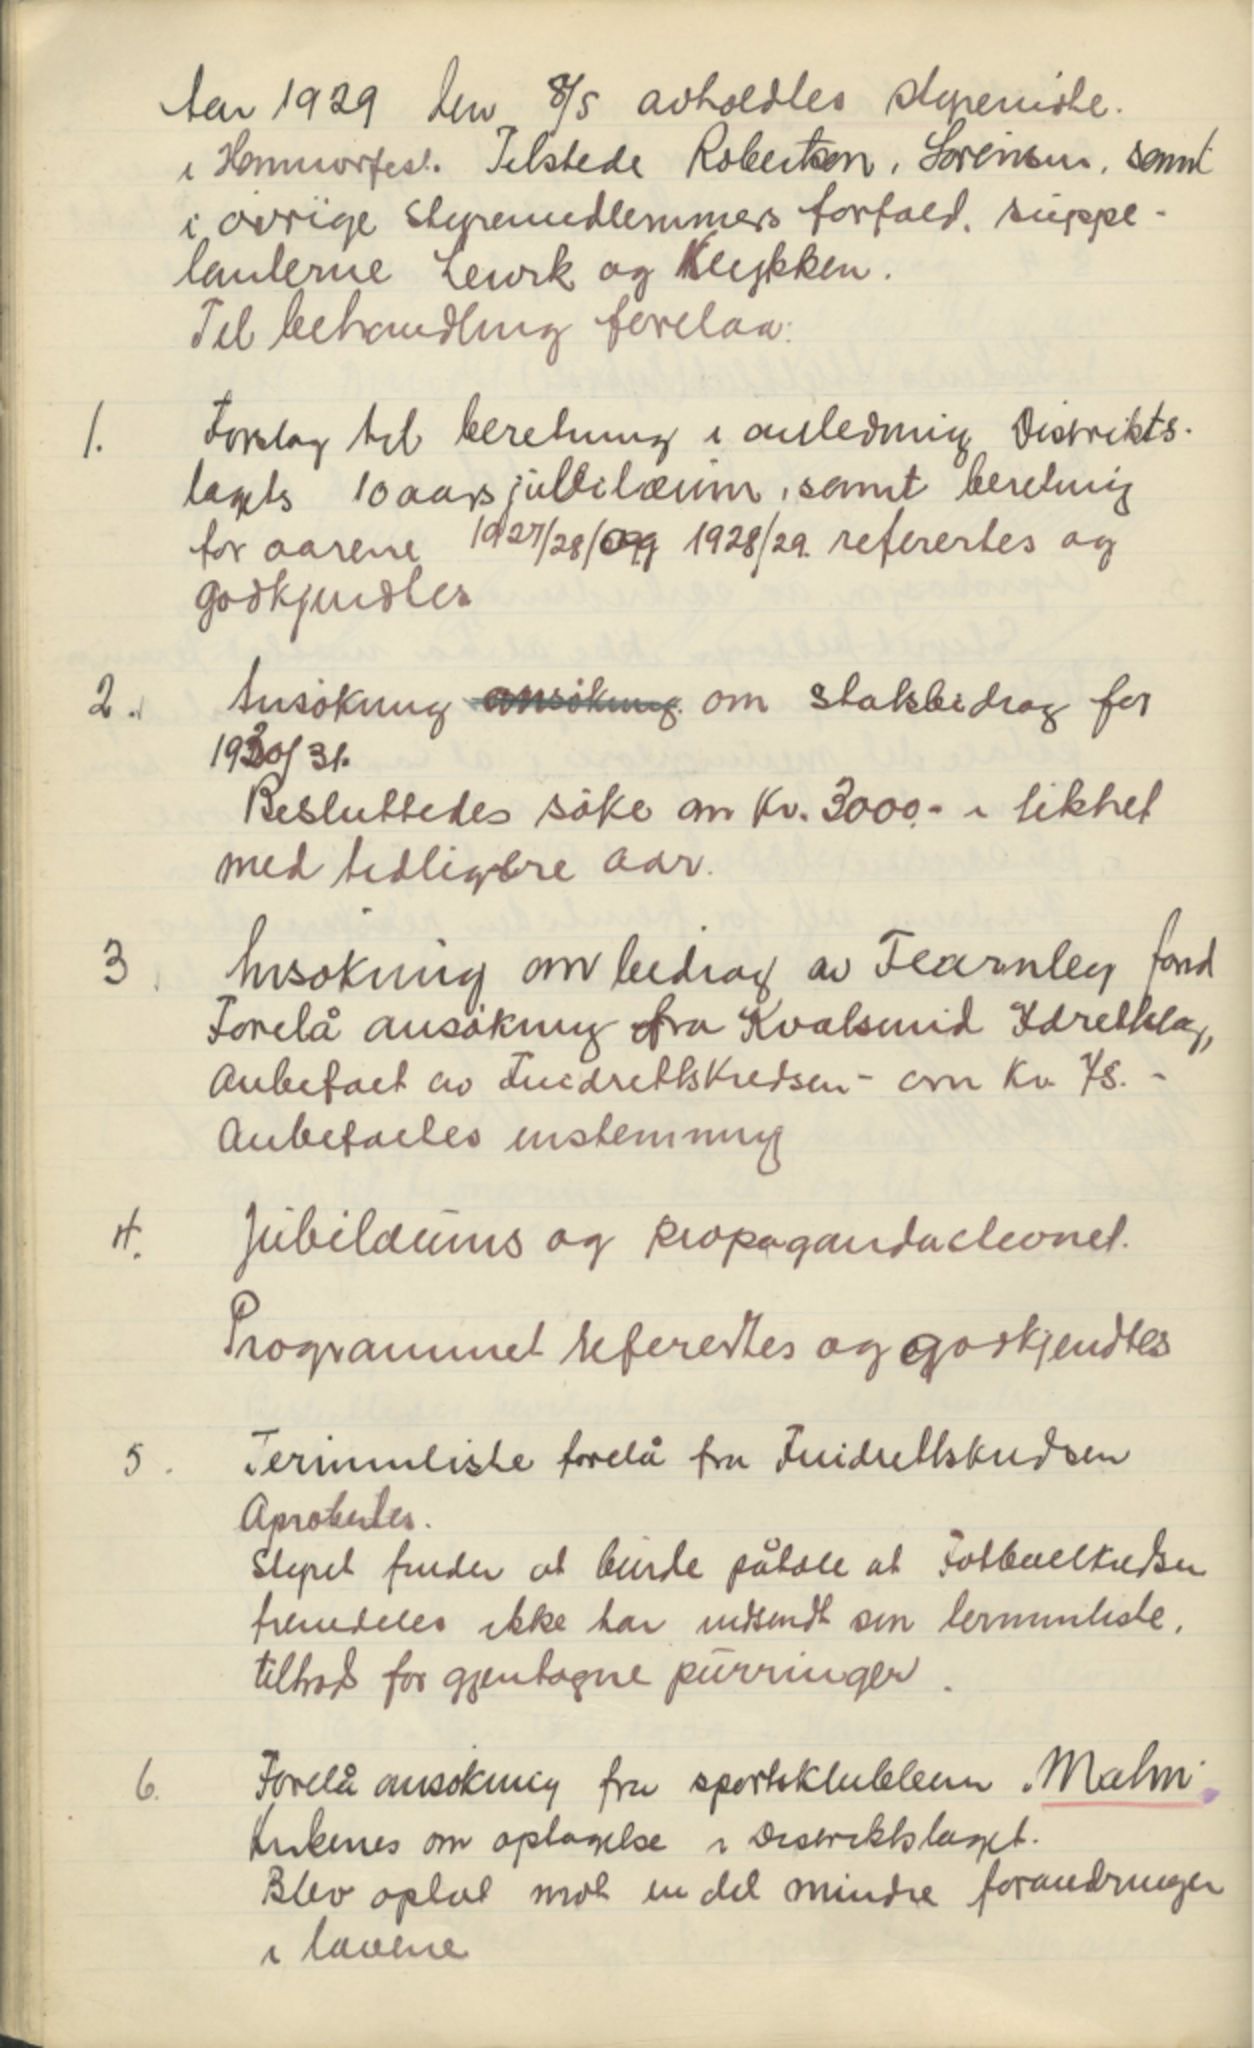 Aar 1929 den 8/5 avholdtes styremöte.
i Hammerfest. Tilstede Robertsen, Sörensen, samt
i övrige styremedlemmers forfald, suppe-
lanterne Lewrk og Klykken.
Til behandling forelaa:
1. Forslag til beretning i anledning Distrikts-
lagets 10 aars jubilæum, samt beretning
for aarene 1927/28/og 1928/29. referertes og
godkjendtes
2. Ansökning ansökning om statsbidrag for
1930/31.
Besluttedes söke om Kr. 3000.- i likhet
med tidligere aar.
3. Ansökning om bidrag av Fearnley fond
Forelå ansökning fra Kvalsund Idretslag,
Anbefalt av Friidrettskredsen - om Kr 75.-
Anbefaltes enstemmig
4. Jubilæums og propagandastevnet.
Programmet referertes og godkjendtes
5. Terminliste forelå fra Friidrettskredsen
Aprobertes.
Styret finder at burde påtale at Fotballkredsen
fremdeles ikke har indsendt sin terminliste,
tiltrods for gjentagne purringer.
6. Forelå ansökning fra sportsklubben "Malm"
Kirkenes om optagelse i Distriktslaget.
Blev optat mot en del mindre forandringer
i lovene